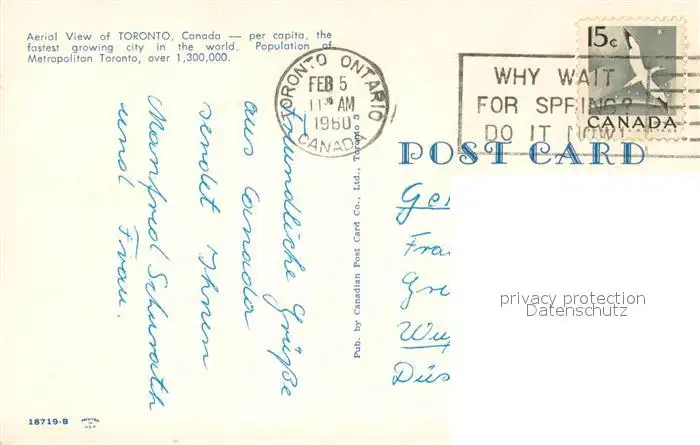 Aerial View of TORONTO, Canada — per capita, the
fastest growing city in the world. Population of
Metropolitan Toronto, over 1,300,000.
TORONTO ONTARIO
FEB 5
11 AM
1960
CANADA
WHY WAIT
FOR SPRING?
DO IT NOW!
15c
CANADA
POST CARD
Freundliche Grüße
aus Canada
sendet Ihnen
Manfred
und Frau.
Pub. by Canadian Post Card Co., Ltd., Toronto 3
privacy protection
Datenschutz
18719-B
PRINTED
IN
U.S.A.